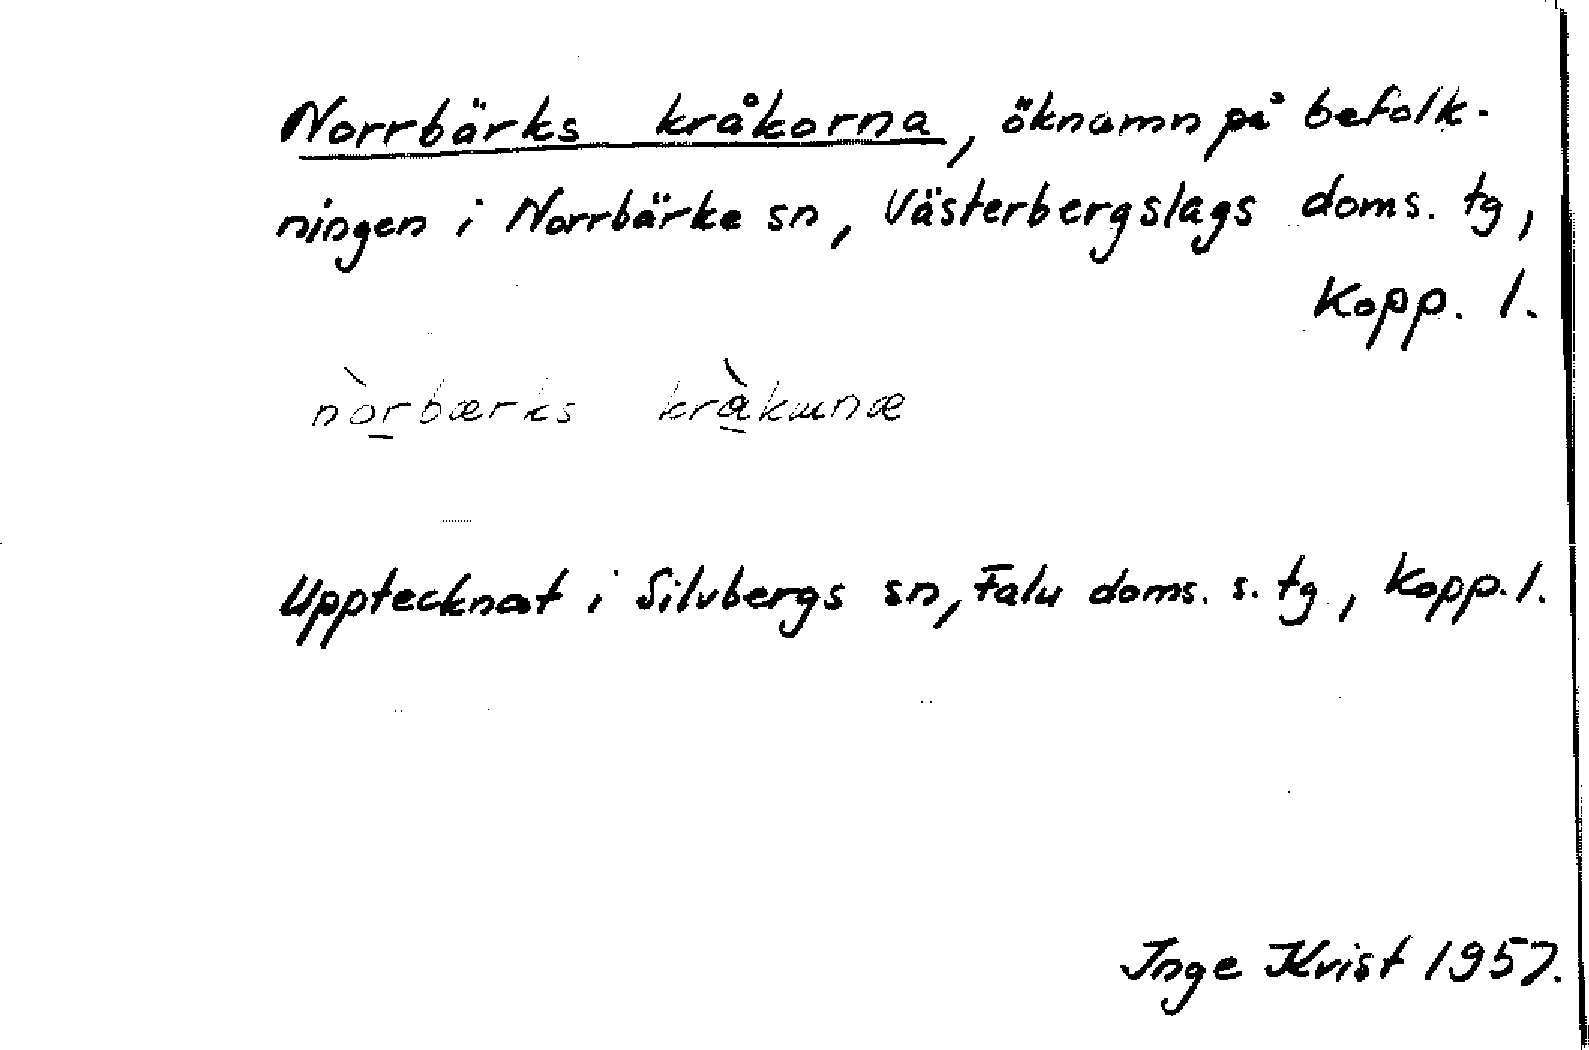 Norrbärks kråkorna, öknamn på befolk-
ningen i Norrbärke sn, Västerbergslags doms. tg,
Kopp. l.
nòrbærks kràkunæ
Upptecknat i Silvbergs sn, Falu doms. s. tg, Kopp. l.
Inge Kvist 1957.